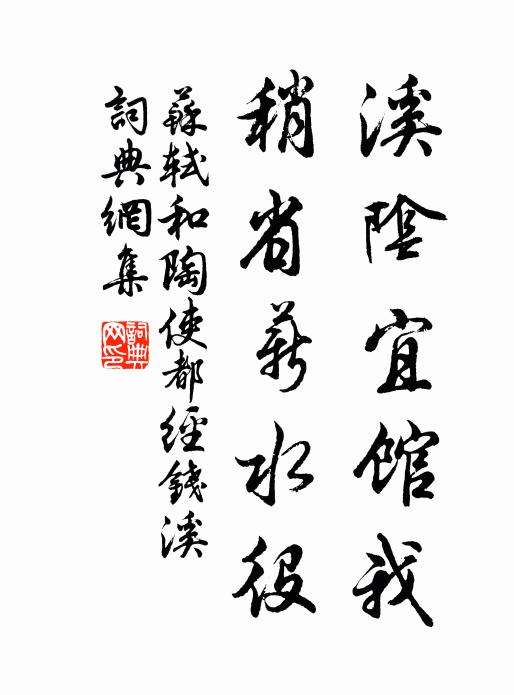 溪陰宜館我
稍省薪水役
蘇軾和陶使都經錢溪
詞典網集
詞典網印